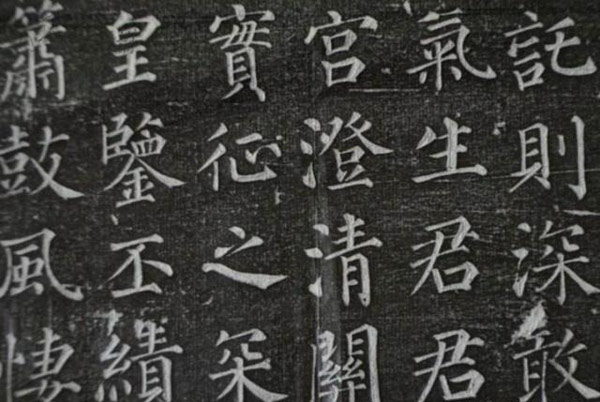 託則深敢
氣生君君
宮澄清關
實征之
皇鑒丕績
簫鼓風悽